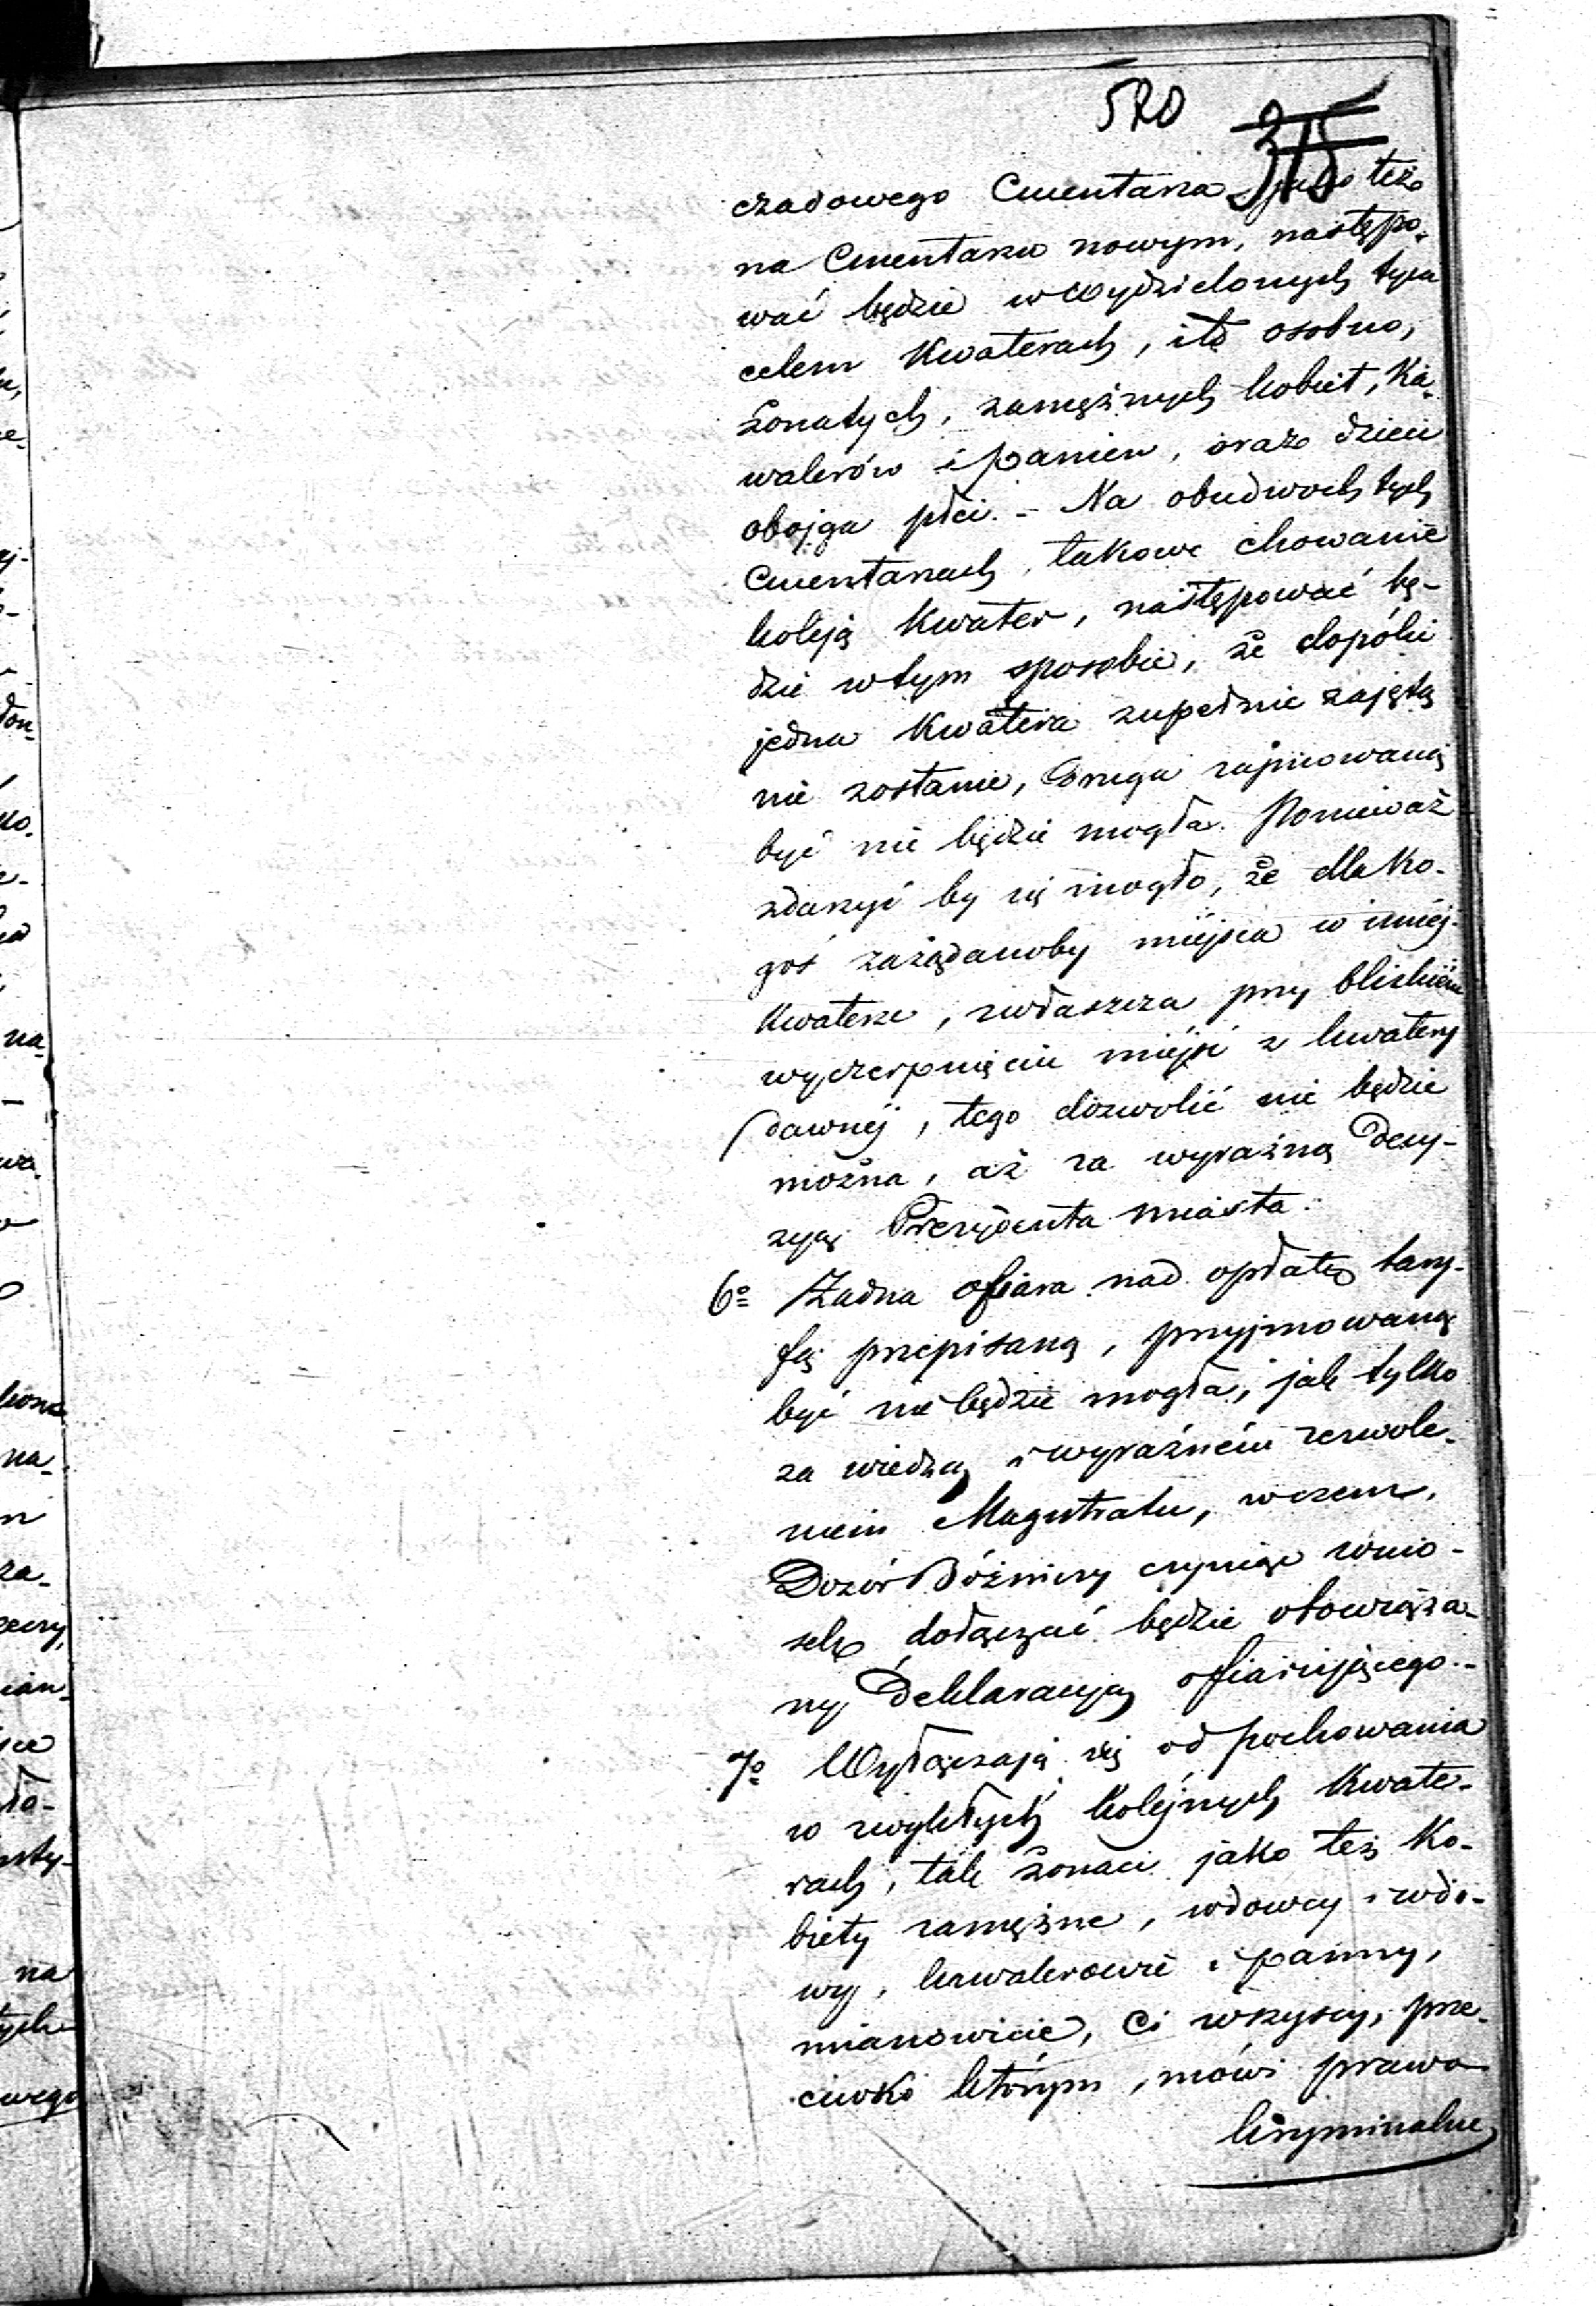 520 315
czasowego Cmentarza jako też
na Cmentarzu nowym, następo-
wać będzie w wydzielonych tym
celem Kwaterach, i to osobno,
żonatych, zamężnych kobiet, Ka-
walerów i panien, oraz dzieci
obojga płci. - Na obudwoch tych
Cmentarzach, takowe chowanie
koleją Kwater, następować bę-
dzie w tym sposobie, że dopóki
jedna Kwatera zupełnie zajętą
nie zostanie, druga zajmowaną
być nie będzie mogła. Ponieważ
zdarzyć by się mogło, że dla ko-
goś zażądanoby miejsca w innéj
Kwaterze, zwłaszcza przy bliskiém
wyczerpnięciu miéjsc z kwatery
dawnéj, tego dozwolić nie będzie
można, aż za wyraźną Decy-
zyą Prezydenta miasta.
6o Żadna ofiara nad opłatę tary-
fą przepisaną, przyjmowaną
być nie będzie mogła, jak tylko
za wiedzą i wyraźném zezwole-
niem Magistratu, w czem,
Dozór Bóżniczy czyniąc wnio-
sek, dołączać będzie obowiąza-
ny Deklaracyą ofiarującego. -
7o Wyłączają się od pochowania
w zwykłych koléjnych Kwate-
rach, tak żonaci jako też Ko-
biety zamężne, wdowcy i wdo-
wy, kawalerowie i panny,
mianowicie, Ci wszyscy, prze-
ciwko którym, mówi prawo
kryminalne